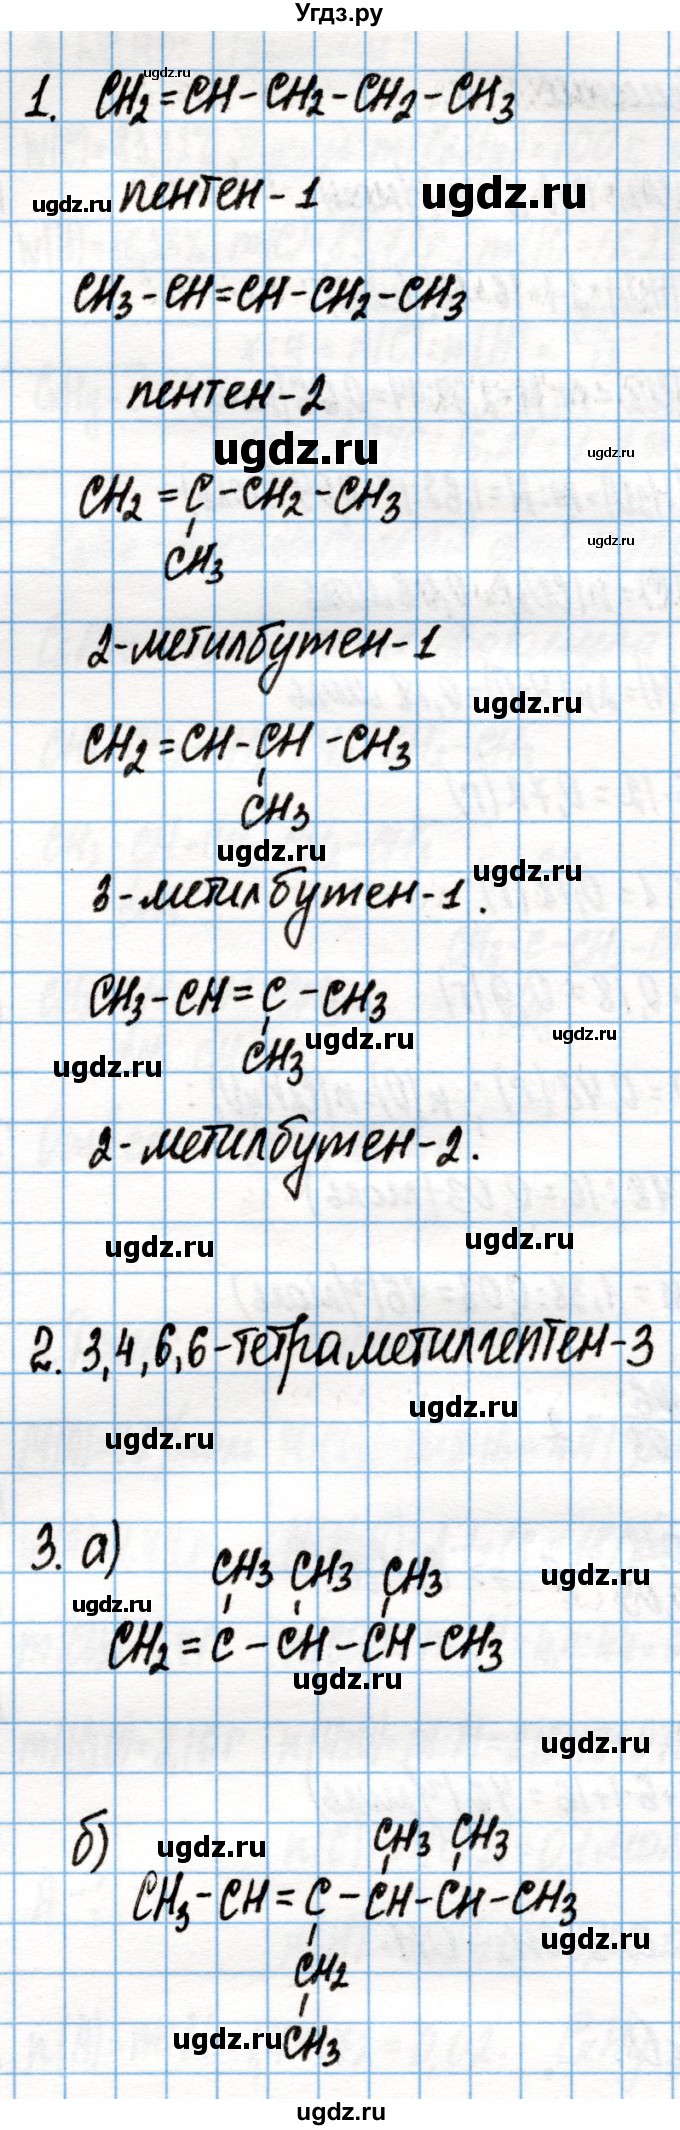 Угдз.ру
ugdz.ru
1. CH2=CH-CH2-CH2-CH3
ugdz.ru пентен-1 ugdz.ru
CH3-CH=CH-CH2-CH3
пентен-2
ugdz.ru ugdz.ru
CH2=C-CH2-CH3
ugdz.ru
CH3
2-метилбутен-1
ugdz.ru
CH2=CH-CH-CH3
CH3
ugdz.ru ugdz.ru
3-метилбутен-1.
CH3-CH=C-CH3
ugdz.ru ugdz.ru
CH3
ugdz.ru
2-метилбутен-2.
ugdz.ru ugdz.ru
2. 3,4,6,6-тетраметилгептен-3
ugdz.ru
ugdz.ru
3. а)
CH3 CH3 CH3 ugdz.ru
ugdz.ru
CH2=C-CH-CH-CH3
ugdz.ru
ugdz.ru
б) ugdz.ru CH3 CH3
CH3-CH=C-CH-CH-CH3
ugdz.ru
CH2
ugdz.ru CH3
ugdz.ru